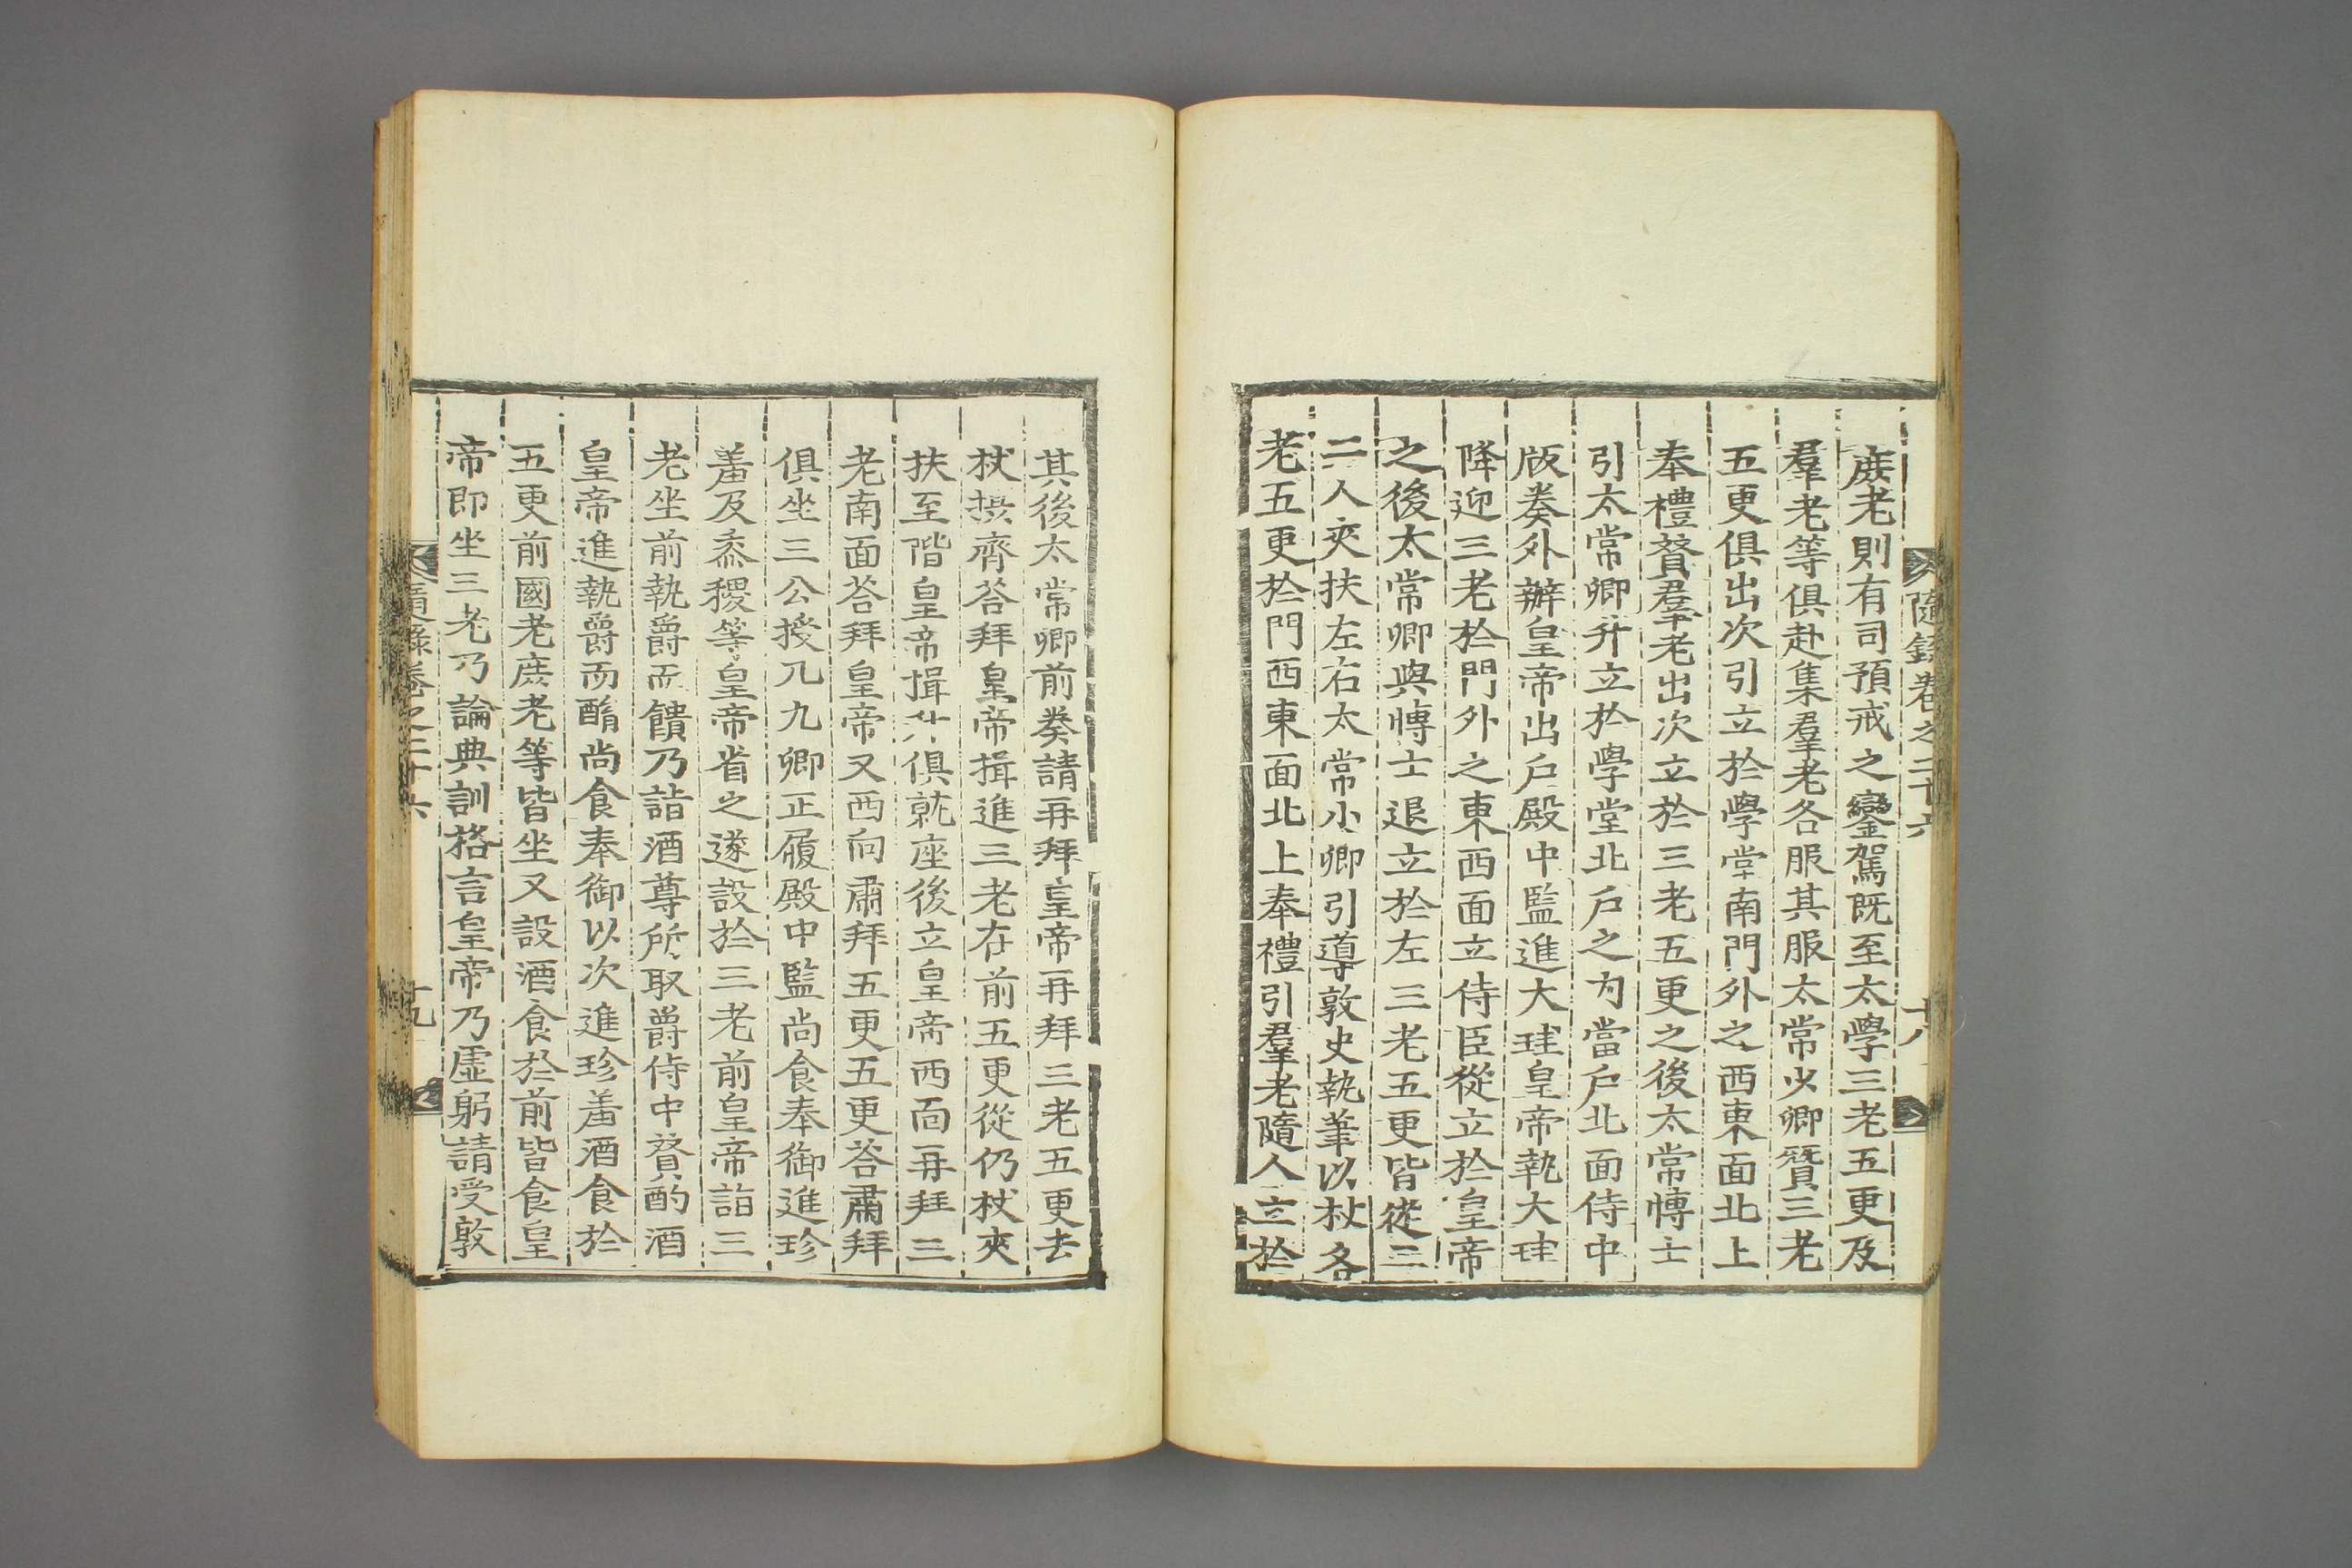 隨錄卷之二十六
十八
庻老則有司預戒之鑾駕既至太學三老五更及
羣老等俱赴集羣老各服其服太常少卿贊三老
五更俱出次引立於學堂南門外之西東面北上
奉禮贊羣老出次立於三老五更之後太常博士
引太常卿升立於學堂北戶之內當戶北面侍中
版奏外辦皇帝出戶殿中監進大珪皇帝執大珪
降迎三老於門外之東西面立侍臣從立於皇帝
之後太常卿與博士退立於左三老五更皆從三
二人夾扶左右太常少卿引導敦史執筆以杖各
老五更於門西東面北上奉禮引羣老隨人立於
其後太常卿前奏請再拜皇帝再拜三老五更去
杖摂齊荅拜皇帝揖進三老在前五更從仍杖夾
扶至階皇帝揖升俱就座後立皇帝西面再拜三
老南面荅拜皇帝又西向肅拜五更五更荅肅拜
俱坐三公授几九卿正履殿中監尚食奉御進珍
羞及黍稷等皇帝省之遂設於三老前皇帝詣三
老坐前執爵而饋乃詣酒尊所取爵侍中贊酌酒
皇帝進執爵而酳尚食奉御以次進珍羞酒食於
五更前國老庻老等皆坐又設酒食於前皆食皇
帝即坐三老乃論典訓格言皇帝乃虛躬請受敦
隨錄卷之二十六
十九